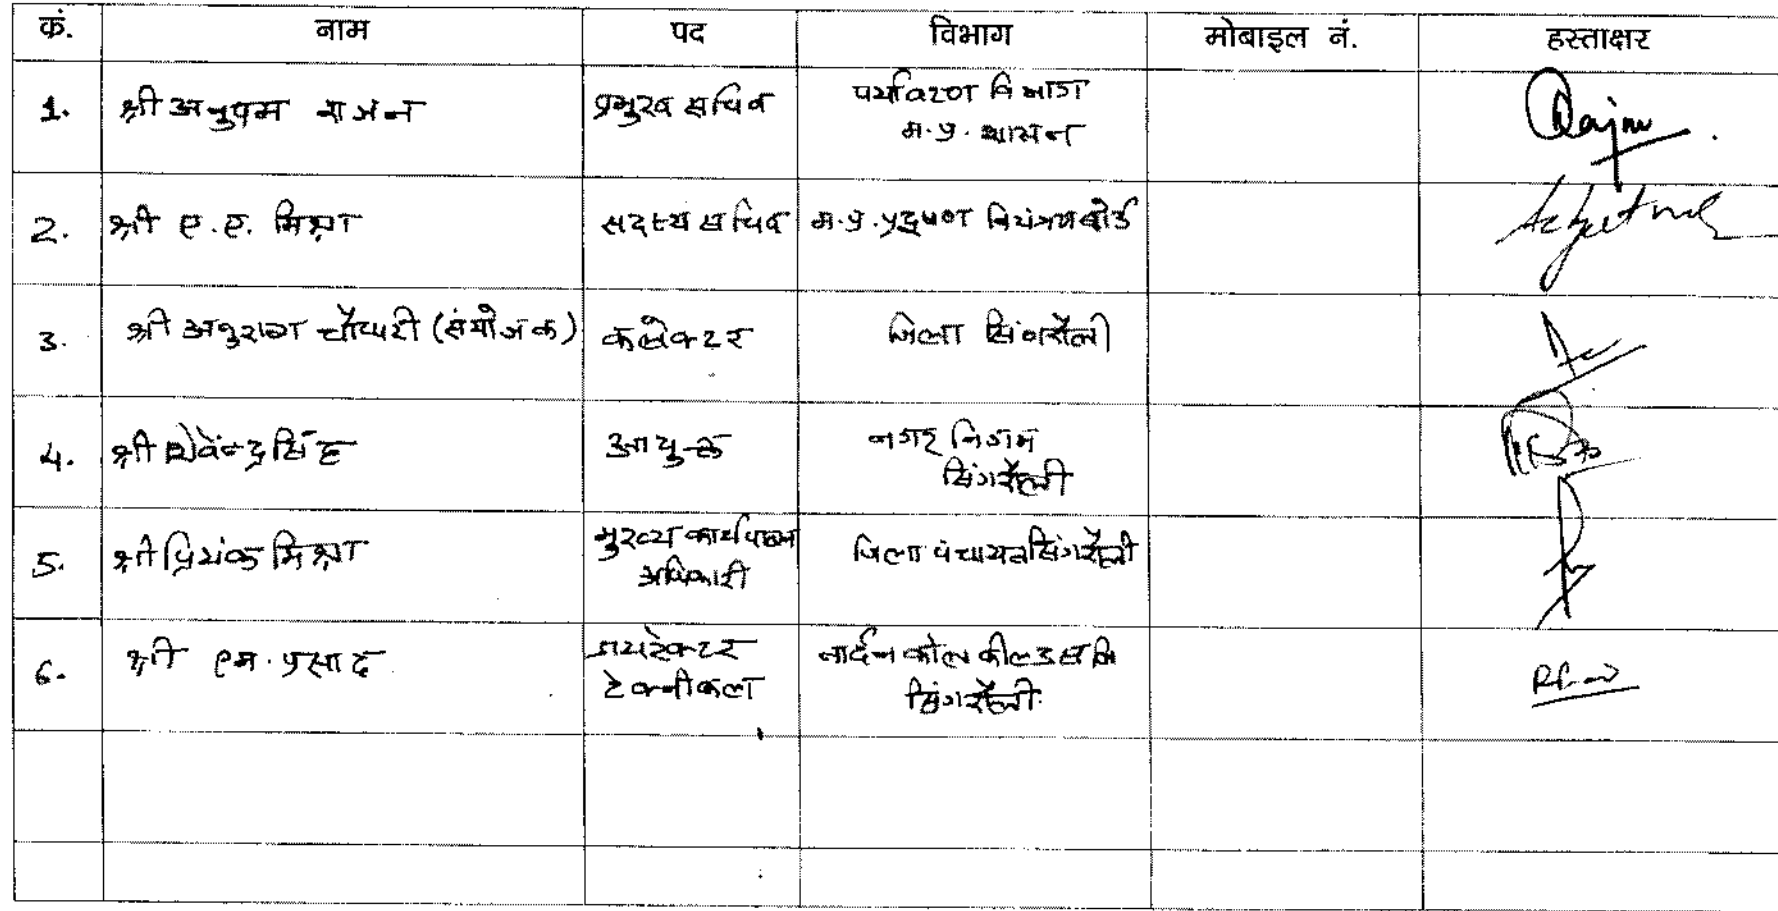 कं. नाम पद विभाग मोबाइल नं. हस्ताक्षर
1. श्री अनुपम राजन प्रमुख सचिव पर्यावरण विभाग
म.प्र. शासन
2. श्री ए.ए. मिश्रा सदस्य सचिव म.प्र. प्रदुषण नियंत्रण बोर्ड
3. श्री अनुराग चौधरी (संयोजक) कलेक्टर जिला सिंगरौली
4. श्री शिवेन्द्र सिंह आयुक्त नगर निगम
सिंगरौली
5. श्री प्रियंक मिश्रा मुख्य कार्यपालन जिला पंचायत सिंगरौली
अधिकारी
6. श्री एम. प्रसाद डायरेक्टर नार्दन कोल फील्डस लि
टेक्नीकल सिंगरौली